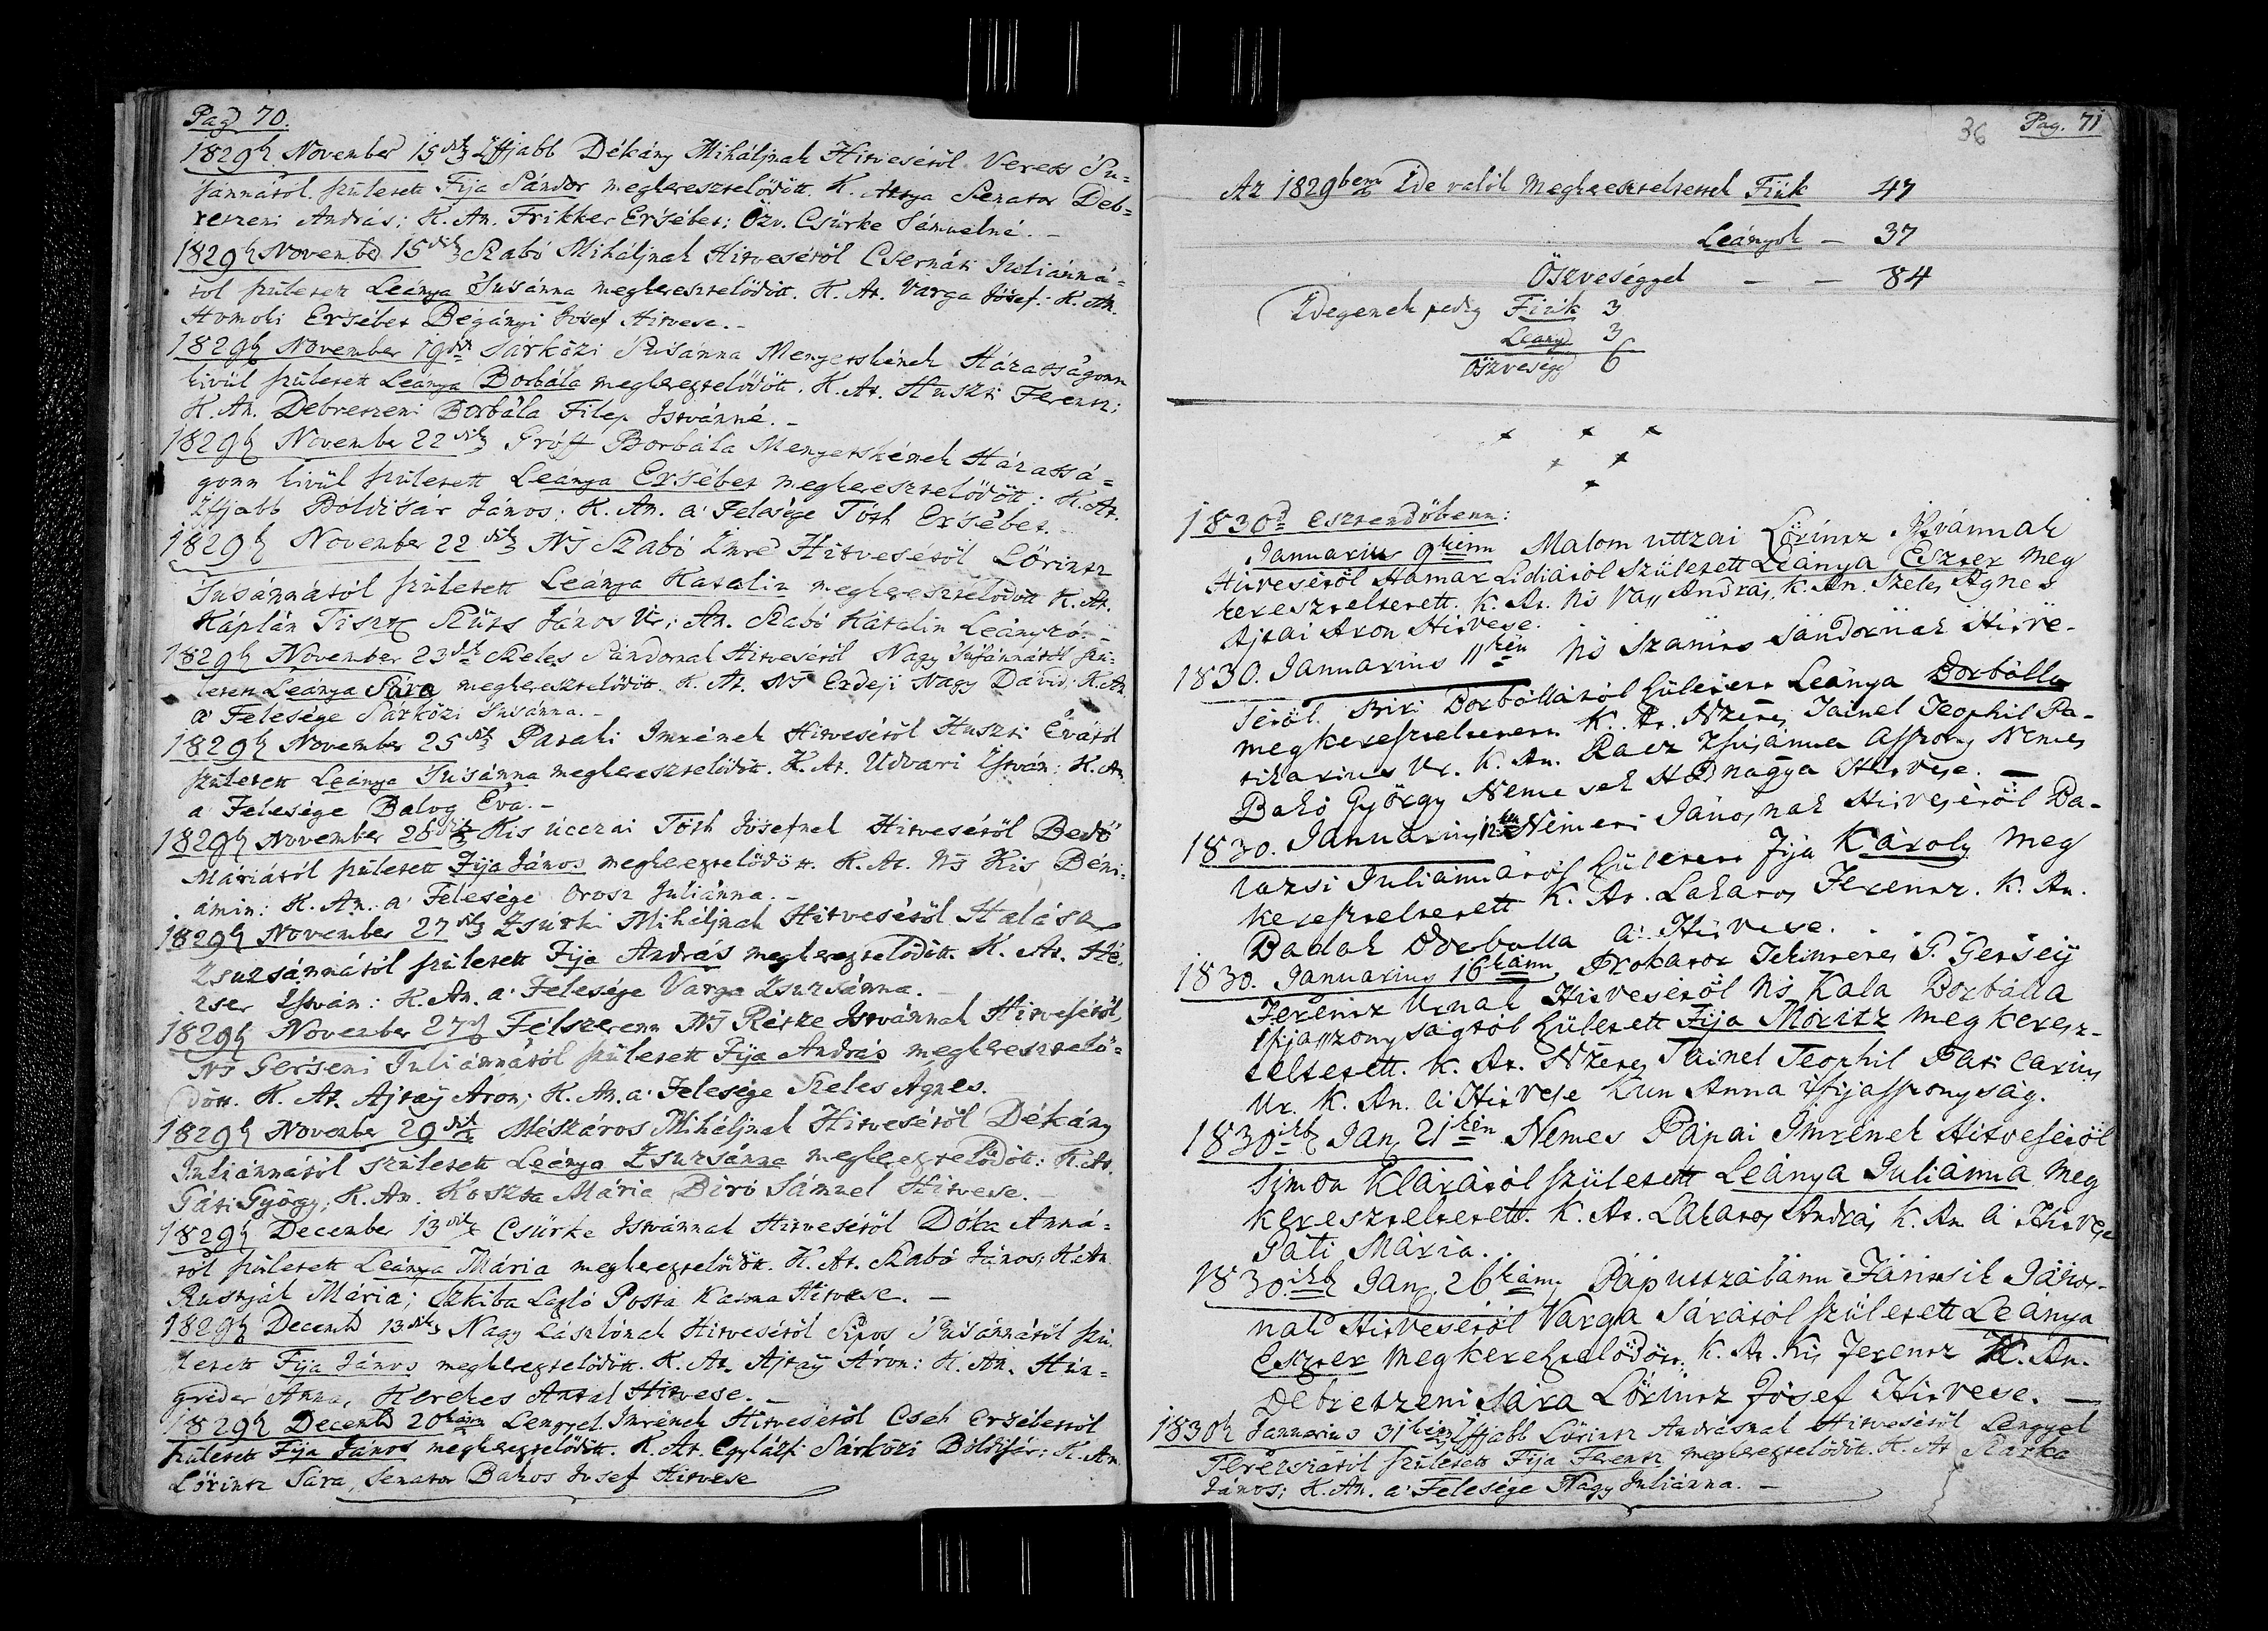 Pag 70.
1829b. November 15dik Iffjabb Dékány Miháljnak Hitvesétöl Veress Su=
sánnától született Fija Sándor megkeresztelödött. K. Attya Senator Deb=
retzeni András; K. An. Frikker Ersébet; Özv. Csürke Sámuelné. –
1829b November 15dik Szabó Miháljnak Hitvesétöl Csernáti Juliánná=
tol született Leánya Susánna megkeresztelödött. K. At. Varga Jósef: K. An.
Homoki Ersébet Bégányi Josef Hitvese. –
1829b November 19dik Sárközi Susánna Menyetskének Házasságonn
kivül született Leánya Borbála megkereztelödött. K. At. Huszti Ferentz;
K. An. Debretzeni Borbála Filep Istvánné. –
1829b November 22dik Gróff Borbála Menyetskének Házassá=
gonn kivül született Leánya Ersébet megkeresztelödött: K. At.
Iffjabb Boldisár János: K. An. a' Felesége Tóth Ersébet.
1829b November 22dik NS Szabó Imre Hitvesétöl Lörintz
Susánnától született Leánya Katalin megkeresztelödött K. At.
Káplán Tisztt Szüts János Ur; An. Szabó Katalin Leányzó. –
1829b November 23dik Szeles Sándornak Hitvesétöl Nagy Susánnától szü=
letett Leánya Sára megkeresztelödött. K. At. NS Erdeji Nagy Dávid; K. An.
a' Felesége Sárközi Susánna. –
1829b November 25dik Pataki Imrének Hitvesétöl Huszti Évától
született Leánya Susánna megkeresztelödött. K. At. Udvari István; K. An.
a' Felesége Balog Éva. –
1829b November 26dik Kis úczai Tóth Jósefnek Hitvesétöl Bedö
Máriától született Fija János megkereztelödött. K. At. NS Kis Béni=
ámin: K. An. a' Felesége Orosz Juliánna. –
1829b November 27dik Zsurki Miháljnak Hitvesétöl Halász
Zsuzsánnától született Fija András megkereztelödött. K. At.
István: K. An. a' Felesége Varga Zsuzsánna.
1829b November 27 Félszerenn NS Rétze Istvánnak Hitvesétöl,
NS Gerseni Juliánnától született Fija András megkeresztelö=
dött. K. At. Ajtay Áron; K. An. a' Felesége Szeles Agnes.
1829b November 29dik Mészáros Miháljnak Hitvesétöl Dékány
Juliánnától született Leánya Zsuzsánna megkereztelödött: K. At.
Páti Gyögy; K. An. Koszta Mária Biró Sámuel Hitvese.
1829b December 13dik Csürke Istvánnak Hitvesétöl Dóka Anná=
tól született Leánya Mária megkereztelödött. K. At. Szabó János; K. An.
Ruszják Mária; Czkiba Lazló Posta Kasna Hitvese. –
1829b Decemb 13dik Nagy Lászlónak Hitvesétöl Sipos Susánnától szü=
letett Fija János megkereztelödött. K. At. Ajtay Áron: K. An. Hin=
grider Anna, Kerekes Antal Hitvese. –
1829b Decemb 20kán Lengyel Imrének Hitvesétöl Cseh Ersébettöl
született Fija János megkereztelödött. K. At. Egyházfi Sárközi Boldisár; K. An.
Lörintz Sára, Senator Bakos Josef Hitvese
36 Pag. 71
Az 1829benn Ide valók megkereszteltettek Fiúk 47
Leányok – 37
Öszveséggel – – 84
Idegenek pedig Fiúk 3
Leány 3
Öszveségg 6
1830d esztendöbenn:
Januarius 9kénn Malom uttzai Lörintz Istvánnak
Hitvesétöl Hamar Lidiától született Leánya Eszter meg
kereszteltetett. K. At. Ns Vass András, K. An. Szeles Agnes
Ajtai Áron Hitvese.
1830. Januarius 11kén Ns Szántó Sándornak Hitve-
sétöl Biri Borbállától született Leánya Borbálla
megkereszteltetett K. At. Nzetes Jainel Teophil Pa-
tikarius Ur. K. An. Racz Zsusánna Asszony Nemes
Bakó György Nemesek Hadnagya Hitvese. –
1830. Januarius 12kén Németi Jánosnak Hitvesétöl Ba-
razsi Juliánnától született Fija Károly meg
kereszteltetett K. At. Lakatos Ferentz. K. An.
Badak Borbálla a' Hitvese.
1830. Januarius 16kánn Prokator Tekintetes G. Gerséy
Ferentz Urnak Hitvesétöl Ns Kala Borbálla
Ifjasszonyságtól született Fija Móritz megkeresz-
teltetett. K. At. Nzetes Tainel Teophil Patikarius
Ur. K. An. a' Hitvese Kun Anna ifijasszonyság.
1830ikb Jan, 21kén Nemes Pápai Imrének Hitvesétöl
Simon Klárától született Leánya Juliánna meg
kereszteltetett. K. At. Lakatos András K. An. a' Hitvese
Páti Mária.
1830ikb Jan, 26kánn Páp uttzábann Fárniik János-
nak Hitvesétöl Varga Sárától született Leánya
Eszter megkeresztelödött. K. At. Kis Ferentz K. An.
Debretzeni Sára Lörintz Jósef Hitvese. –
1830b Januarius 31kén Iffjabb Lörintz Andrásnak Hitvesétöl Lengyel
Teréziától született Fija Ferentz megkereztelödött. K. At Szarka
János; K. An. a' Felesége Nagy Juliánna. –